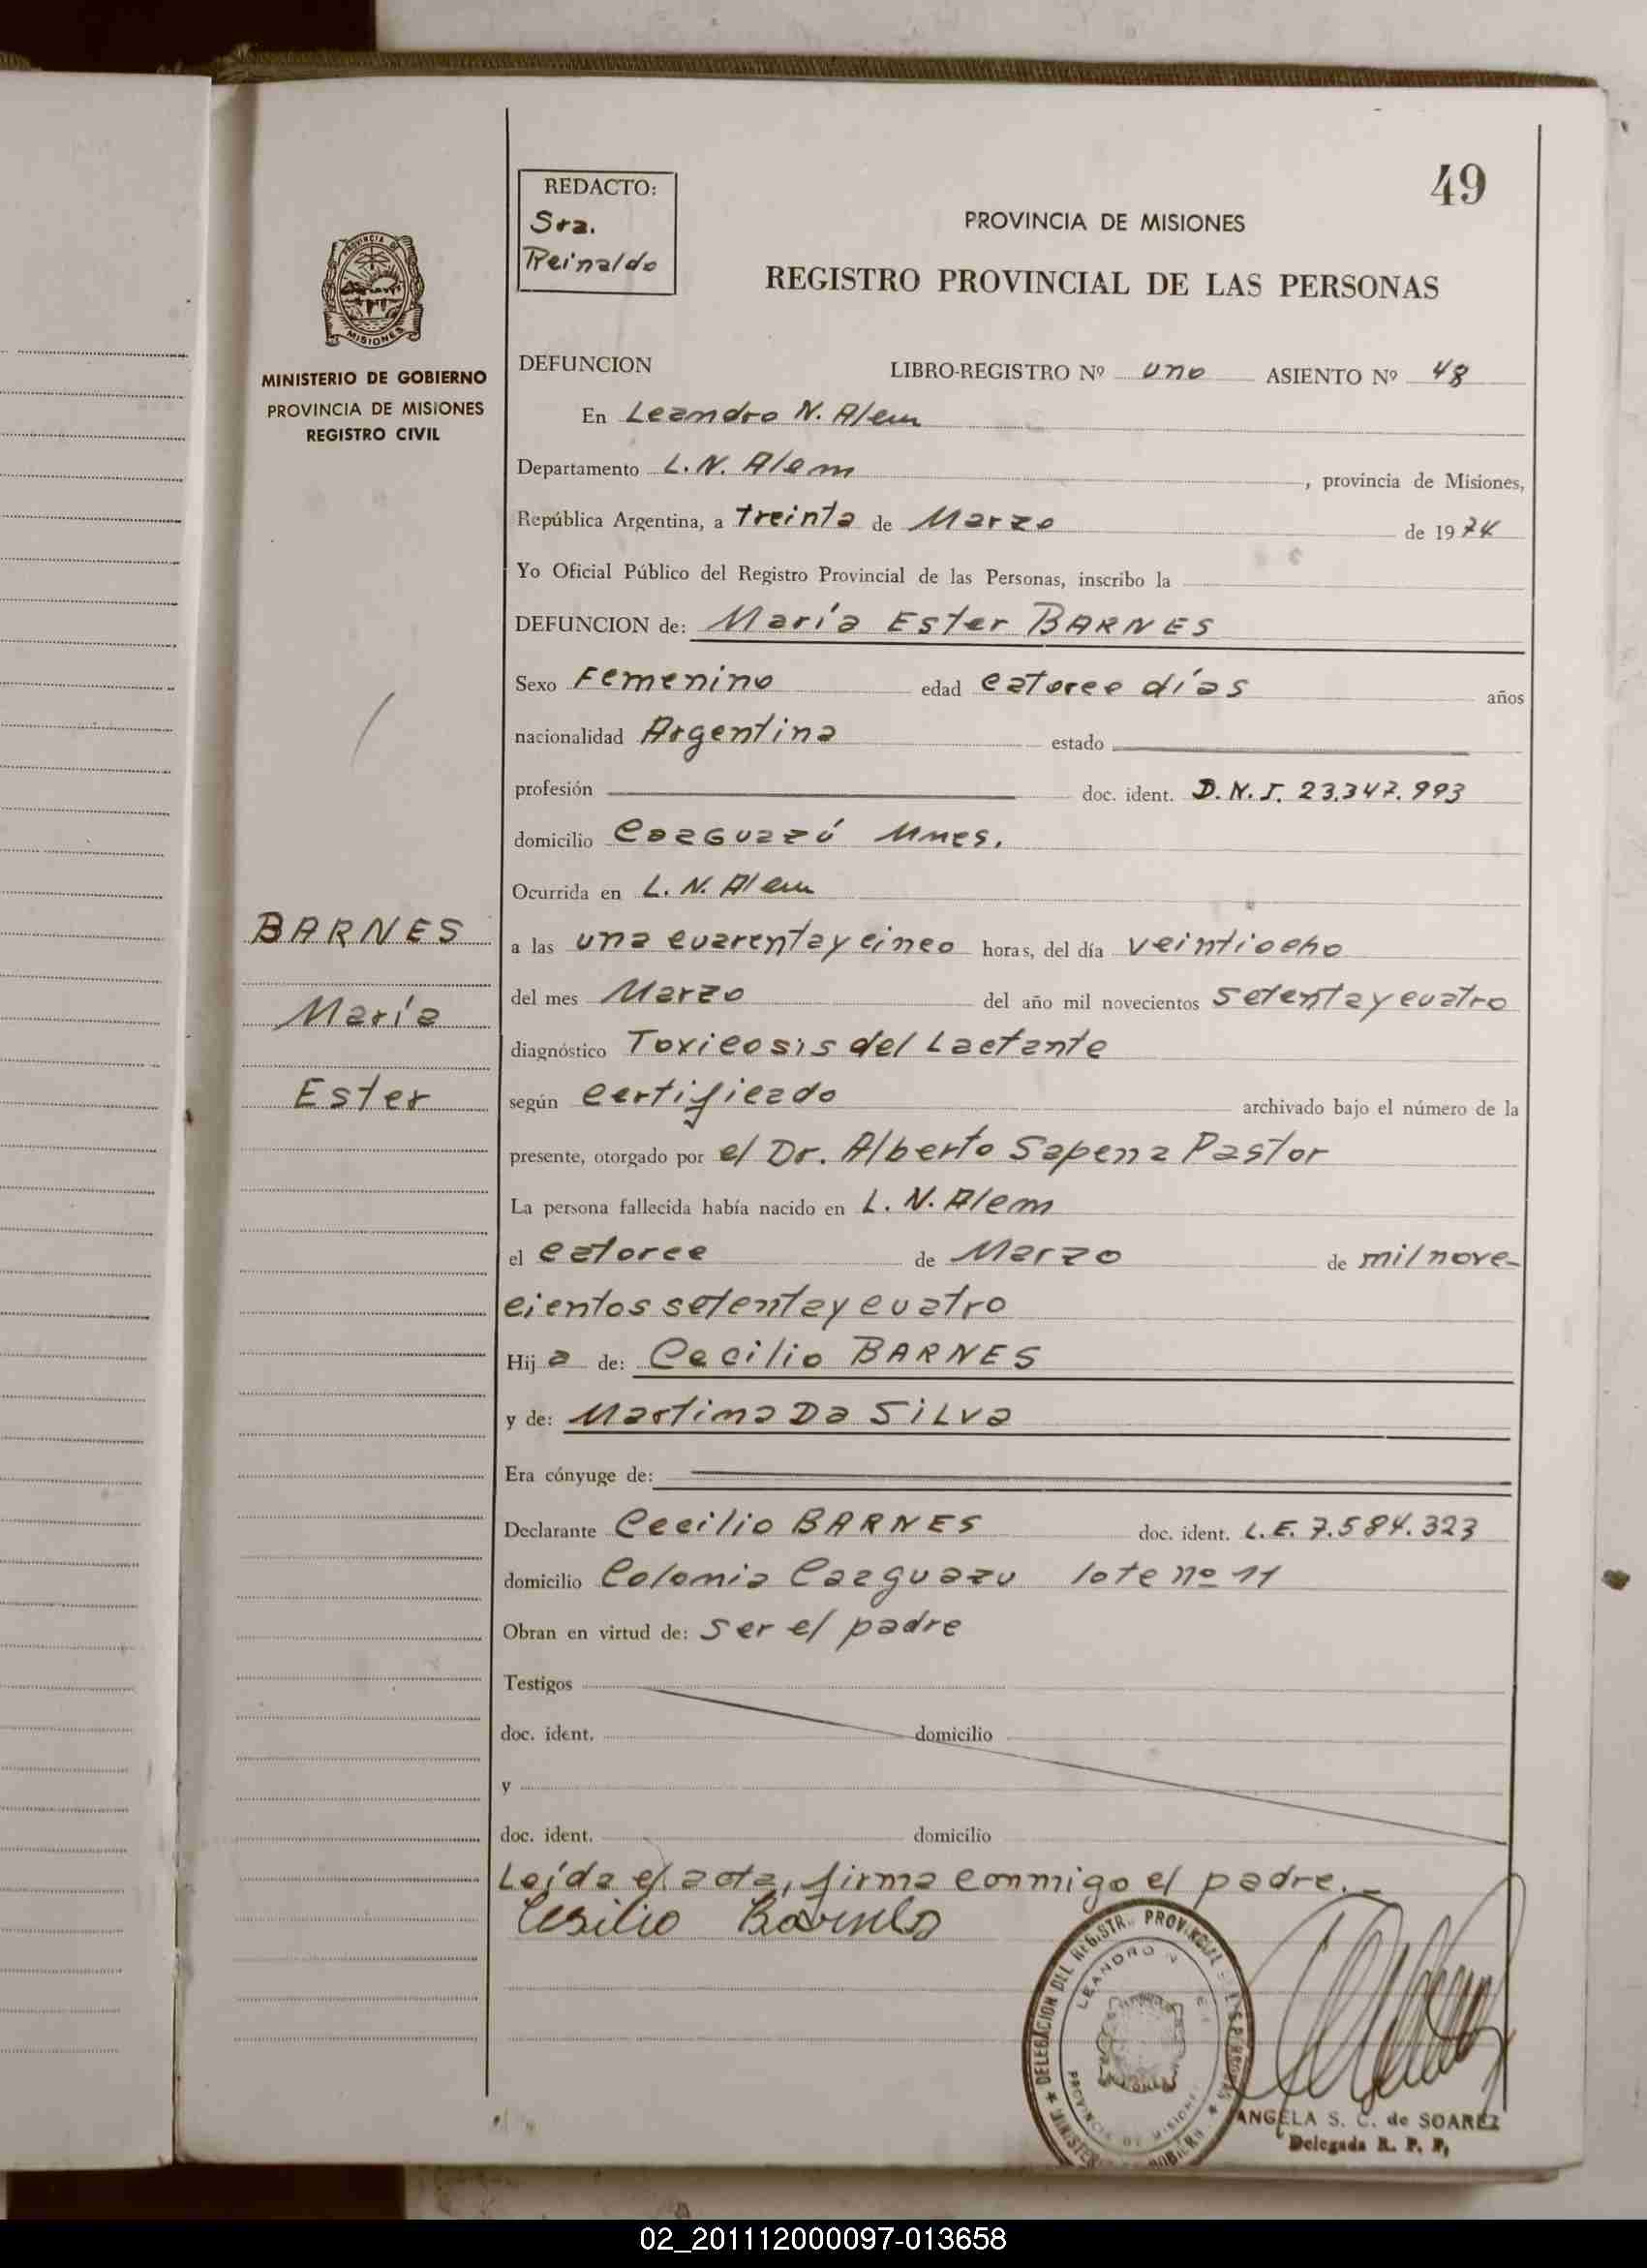 49
REDACTO:
Sra.
Reinaldo
PROVINCIA DE MISIONES
REGISTRO PROVINCIAL DE LAS PERSONAS
PROVINCIA DE
MISIONES
MINISTERIO DE GOBIERNO
PROVINCIA DE MISIONES
REGISTRO CIVIL
DEFUNCION LIBRO-REGISTRO Nº uno ASIENTO Nº 48
En Leandro N. Alem
Departamento L. N. Alem, provincia de Misiones,
República Argentina, a treinta de Marzo de 1974
Yo Oficial Público del Registro Provincial de las Personas, inscribo la
DEFUNCION de: María Ester BARNES
Sexo Femenino edad catorce días años
nacionalidad Argentina estado
profesión doc. ident. D.N.I. 23.347.993
domicilio Caaguazú Mnes.
Ocurrida en L. N. Alem
BARNES
María
Ester
a las una cuarenta y cinco horas, del día veintiocho
del mes Marzo del año mil novecientos setenta y cuatro
diagnóstico Toxicosis del Lactante
según certificado archivado bajo el número de la
presente, otorgado por el Dr. Alberto Sapena Pastor
La persona fallecida había nacido en L. N. Alem
el catorce de Marzo de mil nove-
cientos setenta y cuatro
Hija de: Cecilio BARNES
y de: Martina Da SiLva
Era cónyuge de:
Declarante Cecilio BARNES doc. ident. L.E. 7.584.323
domicilio Colonia Caaguazu lote nº 11
Obran en virtud de: ser el padre
Testigos
doc. ident. domicilio
y
doc. ident. domicilio
Leída el acta, firma conmigo el padre.-
Cesilio Barnes
DELEGACION DEL REGISTR. PROVINCIAL
LEANDRO N
PROVINCIA DE MISIONES
ANGELA S. C. de SOAREZ
Delegada R. P. P.
02_201112000097-013658